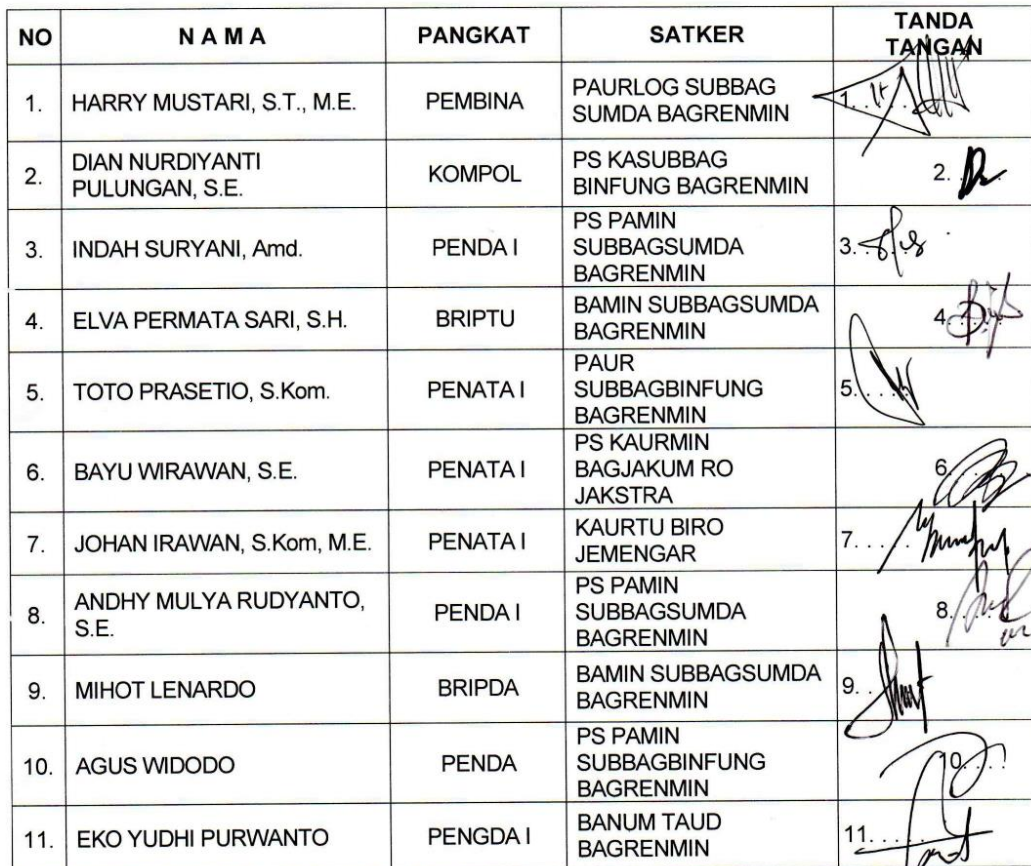 NO N A M A PANGKAT SATKER TANDA
TANGAN
1. HARRY MUSTARI, S.T., M.E. PEMBINA PAURLOG SUBBAG
SUMDA BAGRENMIN 1.
2. DIAN NURDIYANTI
PULUNGAN, S.E. KOMPOL PS KASUBBAG
BINFUNG BAGRENMIN 2.
3. INDAH SURYANI, Amd. PENDA I PS PAMIN
SUBBAGSUMDA
BAGRENMIN 3.
4. ELVA PERMATA SARI, S.H. BRIPTU BAMIN SUBBAGSUMDA
BAGRENMIN 4.
5. TOTO PRASETIO, S.Kom. PENATA I PAUR
SUBBAGBINFUNG
BAGRENMIN 5.
6. BAYU WIRAWAN, S.E. PENATA I PS KAURMIN
BAGJAKUM RO
JAKSTRA 6.
7. JOHAN IRAWAN, S.Kom, M.E. PENATA I KAURTU BIRO
JEMENGAR 7.
8. ANDHY MULYA RUDYANTO,
S.E. PENDA I PS PAMIN
SUBBAGSUMDA
BAGRENMIN 8.
9. MIHOT LENARDO BRIPDA BAMIN SUBBAGSUMDA
BAGRENMIN 9.
10. AGUS WIDODO PENDA PS PAMIN
SUBBAGBINFUNG
BAGRENMIN 10.
11. EKO YUDHI PURWANTO PENGDA I BANUM TAUD
BAGRENMIN 11.